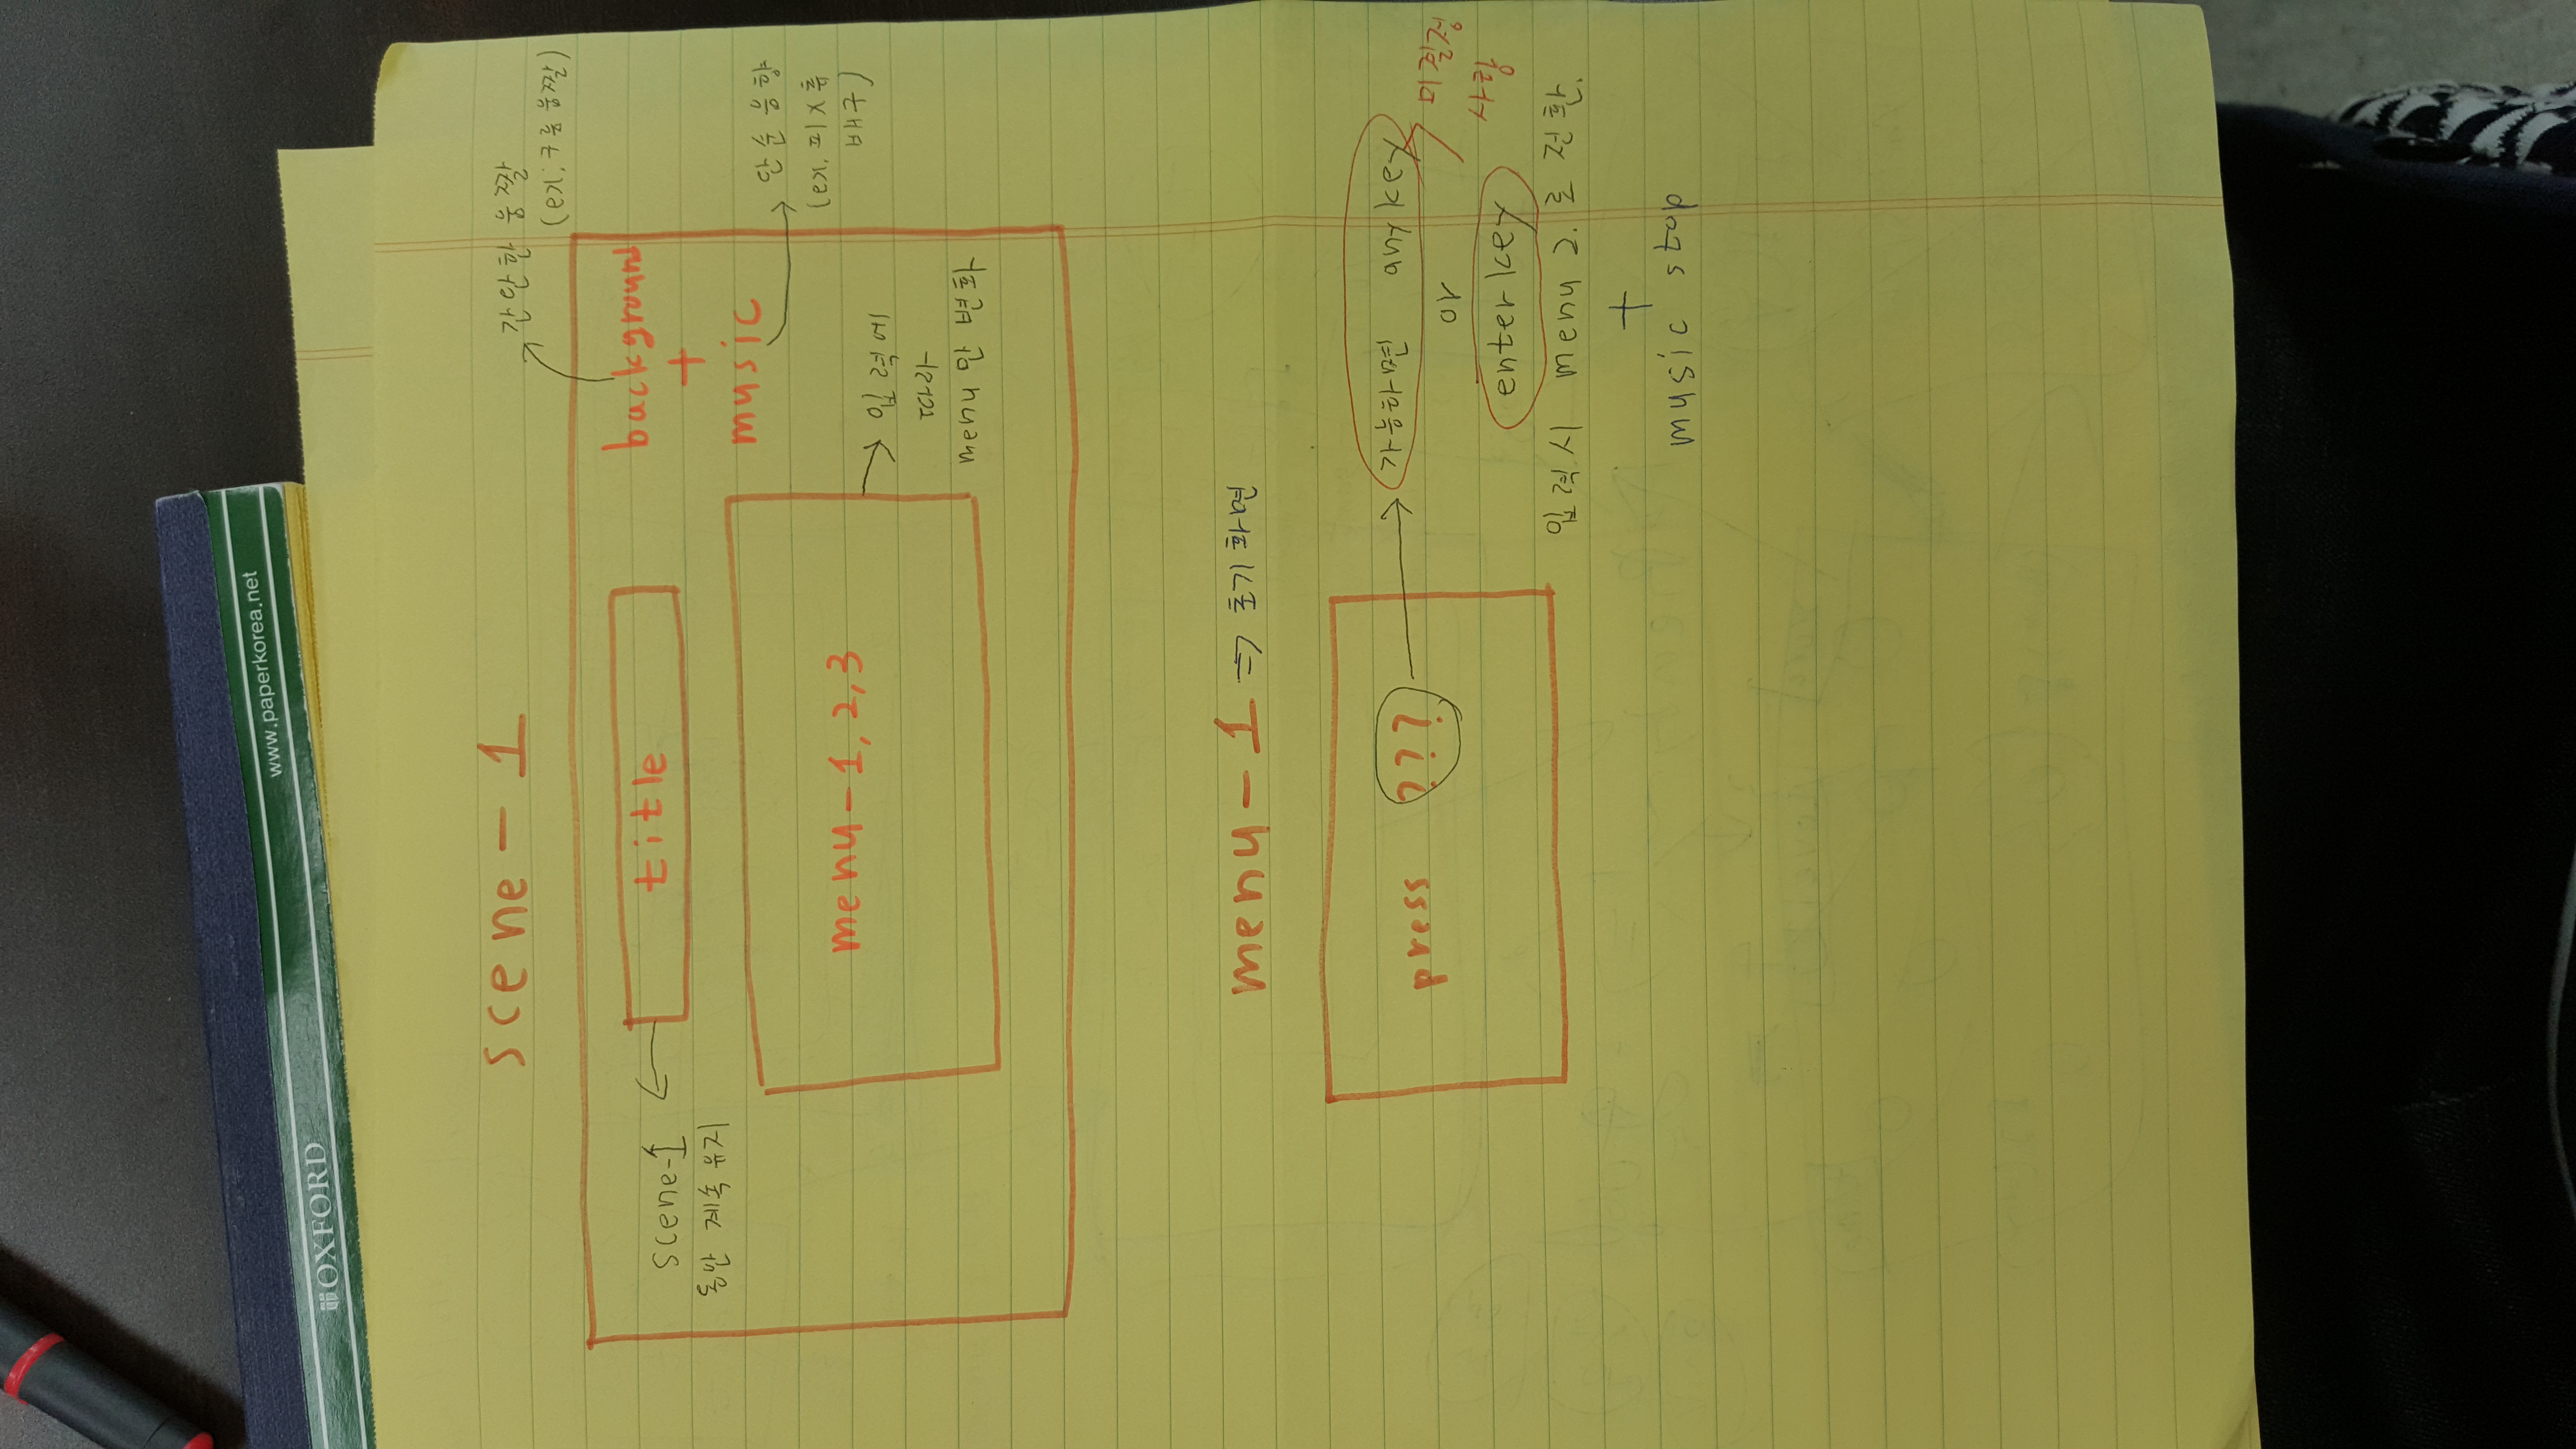 www.paperkorea.net
OXFORD
scene - 1
간단한 움짤
(ex; 구름 움짤)
title
scene-1
동안 계속 유지
background
+
music
단순 음향
(ex. 피X츄
배구)
menu - 1, 2, 3
입력에
따라
menu 만 변화
menu - 1 => 초기화면
press ???
가능하면 any key
or
enter key
미결정
사항
입력시 menu 2. 로 전환.
+
music stop